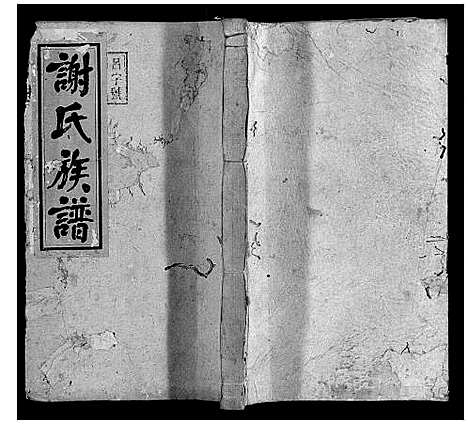 謝氏族譜
呂字號